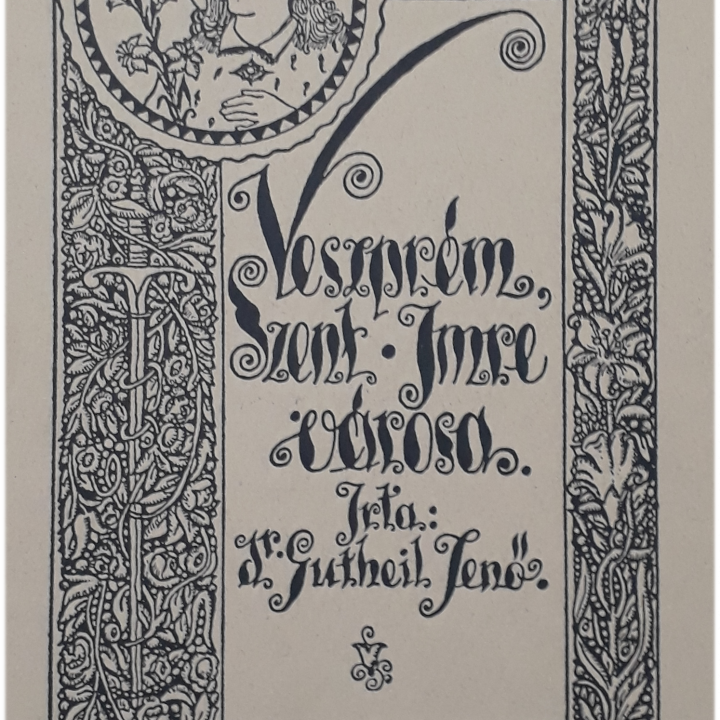 Veszprém,
Szent • Imre
városa.
Irta:
dr: Gutheil Jenő.